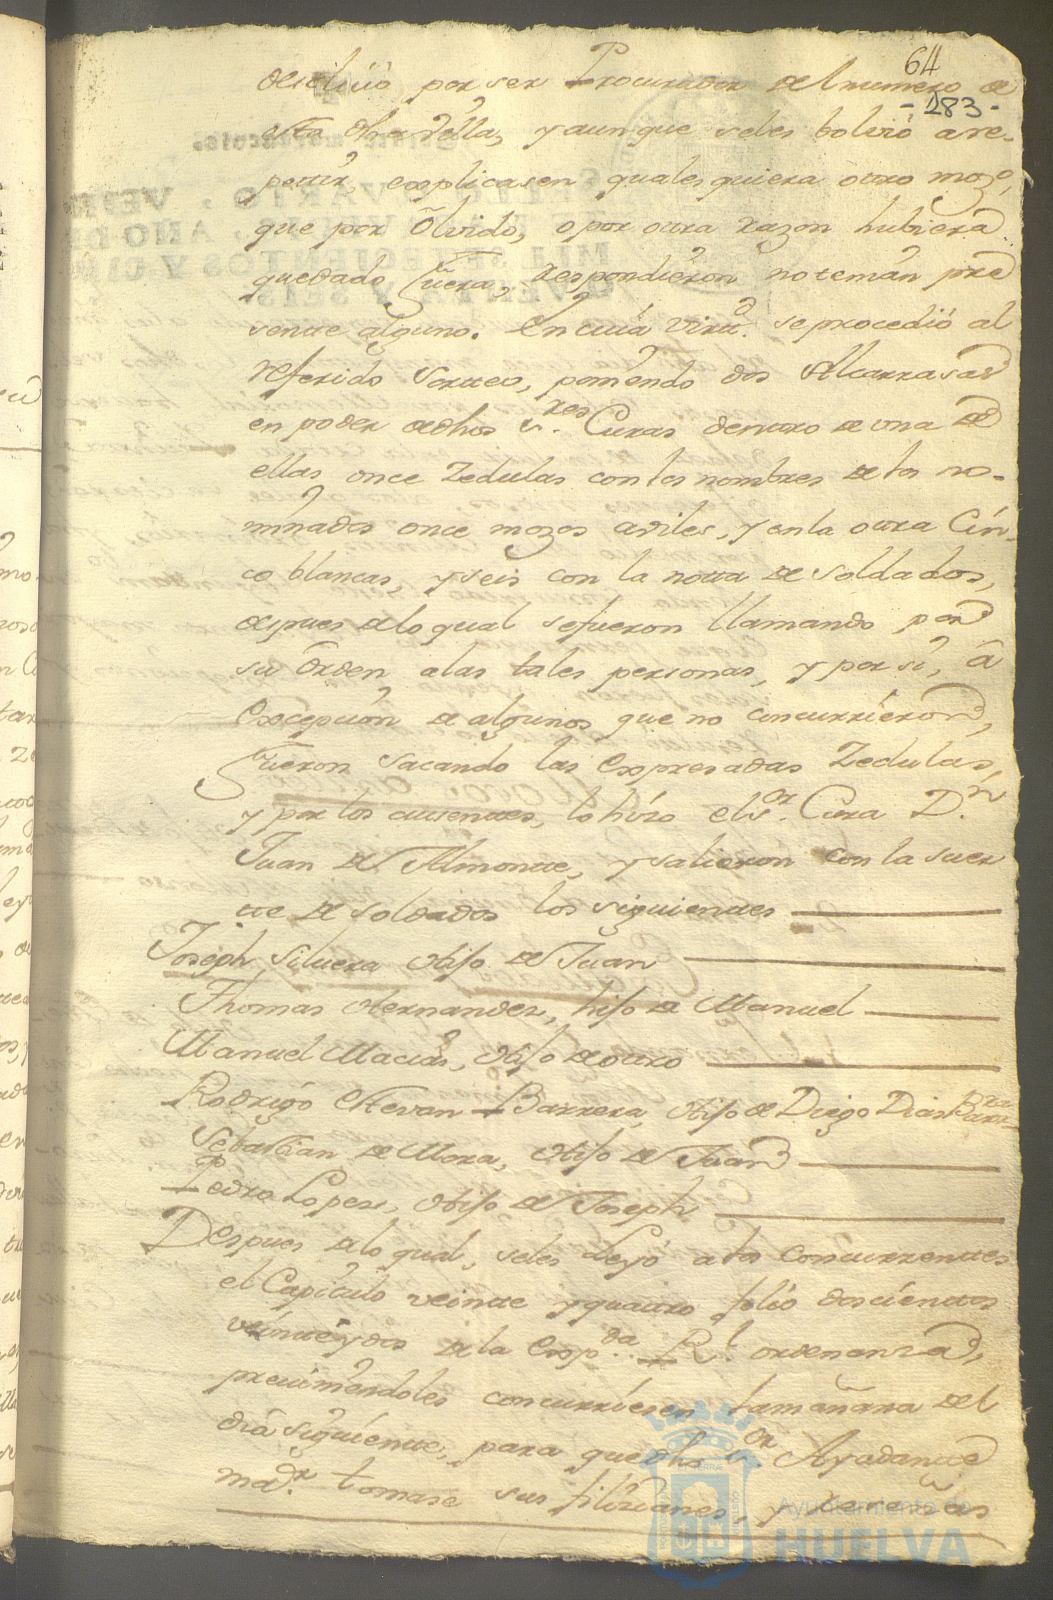 64
- 283 -
desistió por ser Procurador del numero de
esta dha villa, y aunque seles bolvió a re-
petir, explicasen quales quiera otro mozo,
que por Olvido, o por otra razon hubiera
quedado fuera, respondieron no tenian pre
sente alguno. En cuia virtd. se procedió al
referido Sorteo, poniendo dos Alcarrasas
en poder de dhos Sres. Curas dentro de una de
ellas once Zedulas con los nombres de los no-
minados once mozos aviles, y en la otra Cin-
co blancas, y seis con la nota de soldados,
despues de lo qual se fueron llamando por
su Orden a las tales personas, y por sí, â
excepcion de algunos que no concurrieron,
fueron sacando las Expresadas Zedulas,
y por los ausentes, lo hizo el Sor. Cura Dn.
Juan de Almonte, y salieron con la suer
te de soldados los siguientes
Joseph Siluera Hijo de Juan
Thomas Hernandez, hijo de Manuel
Manuel Macias, Hijo de otro
Rodrigo Estevan Barrera, Hijo de Diego Dias
Sebastian de Mora, Hijo de Juan
Pedro Lopes, Hijo de Joseph
Despues de lo qual, seles Leyó a los Concurrentes
el Capitulo veinte y quatro folio doscientos
veinte y dos de la Expda. Rl. ordenanza,
previniendoles concurriesen la mañana del
dia siguiente, para que dho Sor. Ayudante
mor. tomase sus filiaciones, y
Ayuntamiento de
HUELVA